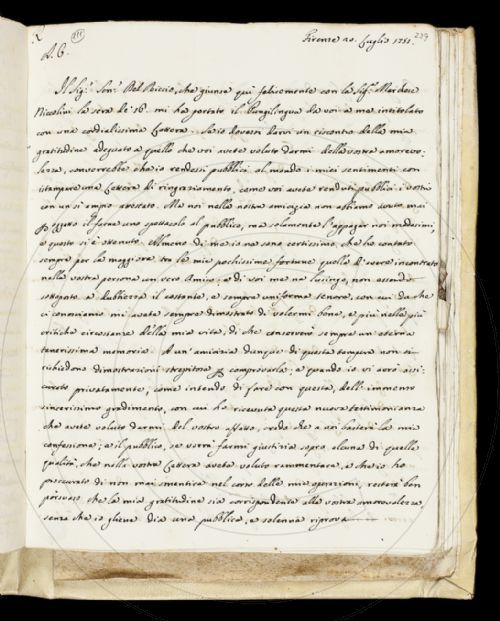 111
Firenze 20. Luglio 1751.
229
A. C.
Il Sig.r Con.e Del Riccio, che giunse quì felicemente con la Sig.ra March.e
Niccolini la sera de' 16. mi ha portato il Pungilingua da voi a me intitolato
con una cordialissima Lettera. Se io dovessi darvi un riscontro della mia
gratitudine adeguato a quello che voi avete voluto darmi della vostra amorevo-
lezza, converrebbe che io rendessi pubblici al mondo i miei sentimenti con
istampare una Lettera di ringraziamento, come voi avete renduti pubblici i vostri
con un sì ampio attestato. Ma noi nella nostra amicizia non abbiamo avuto mai
p oggetto il farne uno spettacolo al pubblico, ma solamente l'appagar noi medesimi,
e questo si è ottenuto. Almeno di me io ne sono certissimo, che ho contato
sempre per la maggiore tra le mie pochissime fortune quella d'avere incontrato
nella vostra persona un vero Amico; e di voi me ne lusingo, non essendo
sottoposto a dubbiezza il costante, e sempre uniforme tenore, con cui da che
ci conosciamo mi avete sempre dimostrato di volermi bene, e più nelle più
critiche circostanze della mia vita, di che conserverò sempre un eterna
tenerissima memoria. A un'amicizia dunque di questa tempera non si
richiedono dimostrazioni strepitose p comprovarla; e quando io vi avrò assi-
curato privatamente, come intendo di fare con questa, dell'immenso
sincerissimo gradimento, con cui ho ricevuta questa nuova testimonianza
che avete voluto darmi del vostro affetto, credo che a voi basterà la mia
confessione; e il pubblico, se vorrà farmi giustizia sopra alcuna di quelle
qualità, che nella vostra Lettera avete voluto rammentare, e che io ho
proccurato di non mai smentire nel corso delle mie operazioni, resterà ben
persuaso che la mia gratitudine sia corrispondente alla vostra amorevolezza,
senza che io gliene dia una pubblica, e solenne riprova